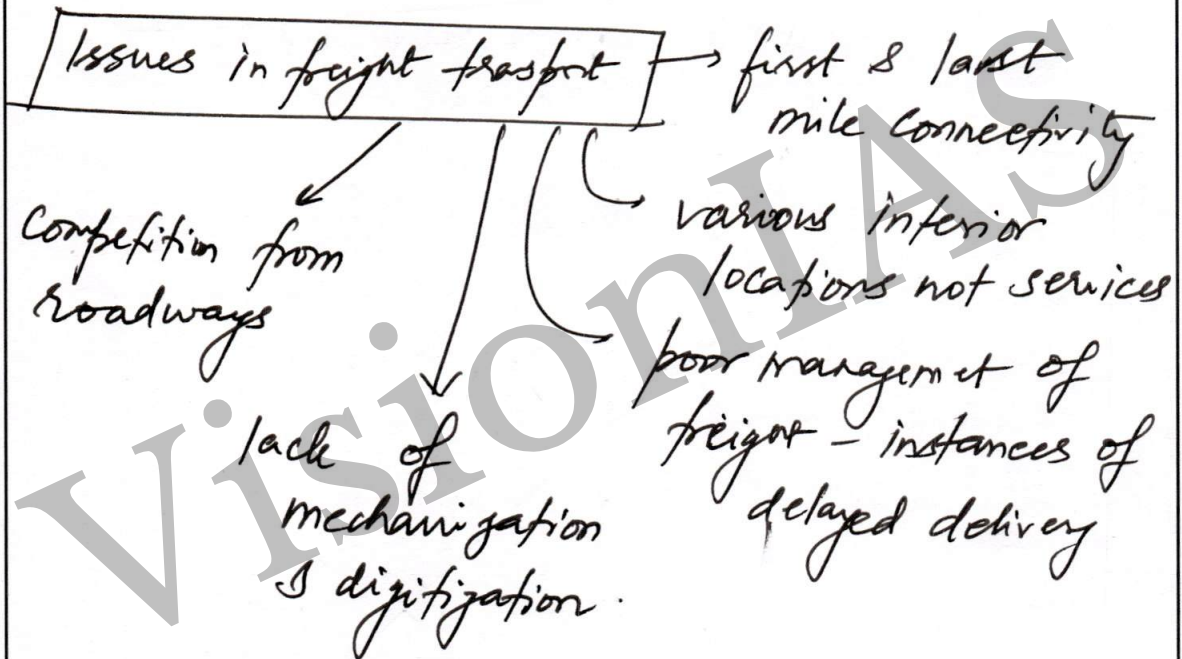 Issues in freight trasport
first & last
mile connectivity
various interior
locations not services
poor managemet of
freight - instances of
delayed delivery
lack of
mechanization
& digitization.
Competition from
roadways
VisionIAS